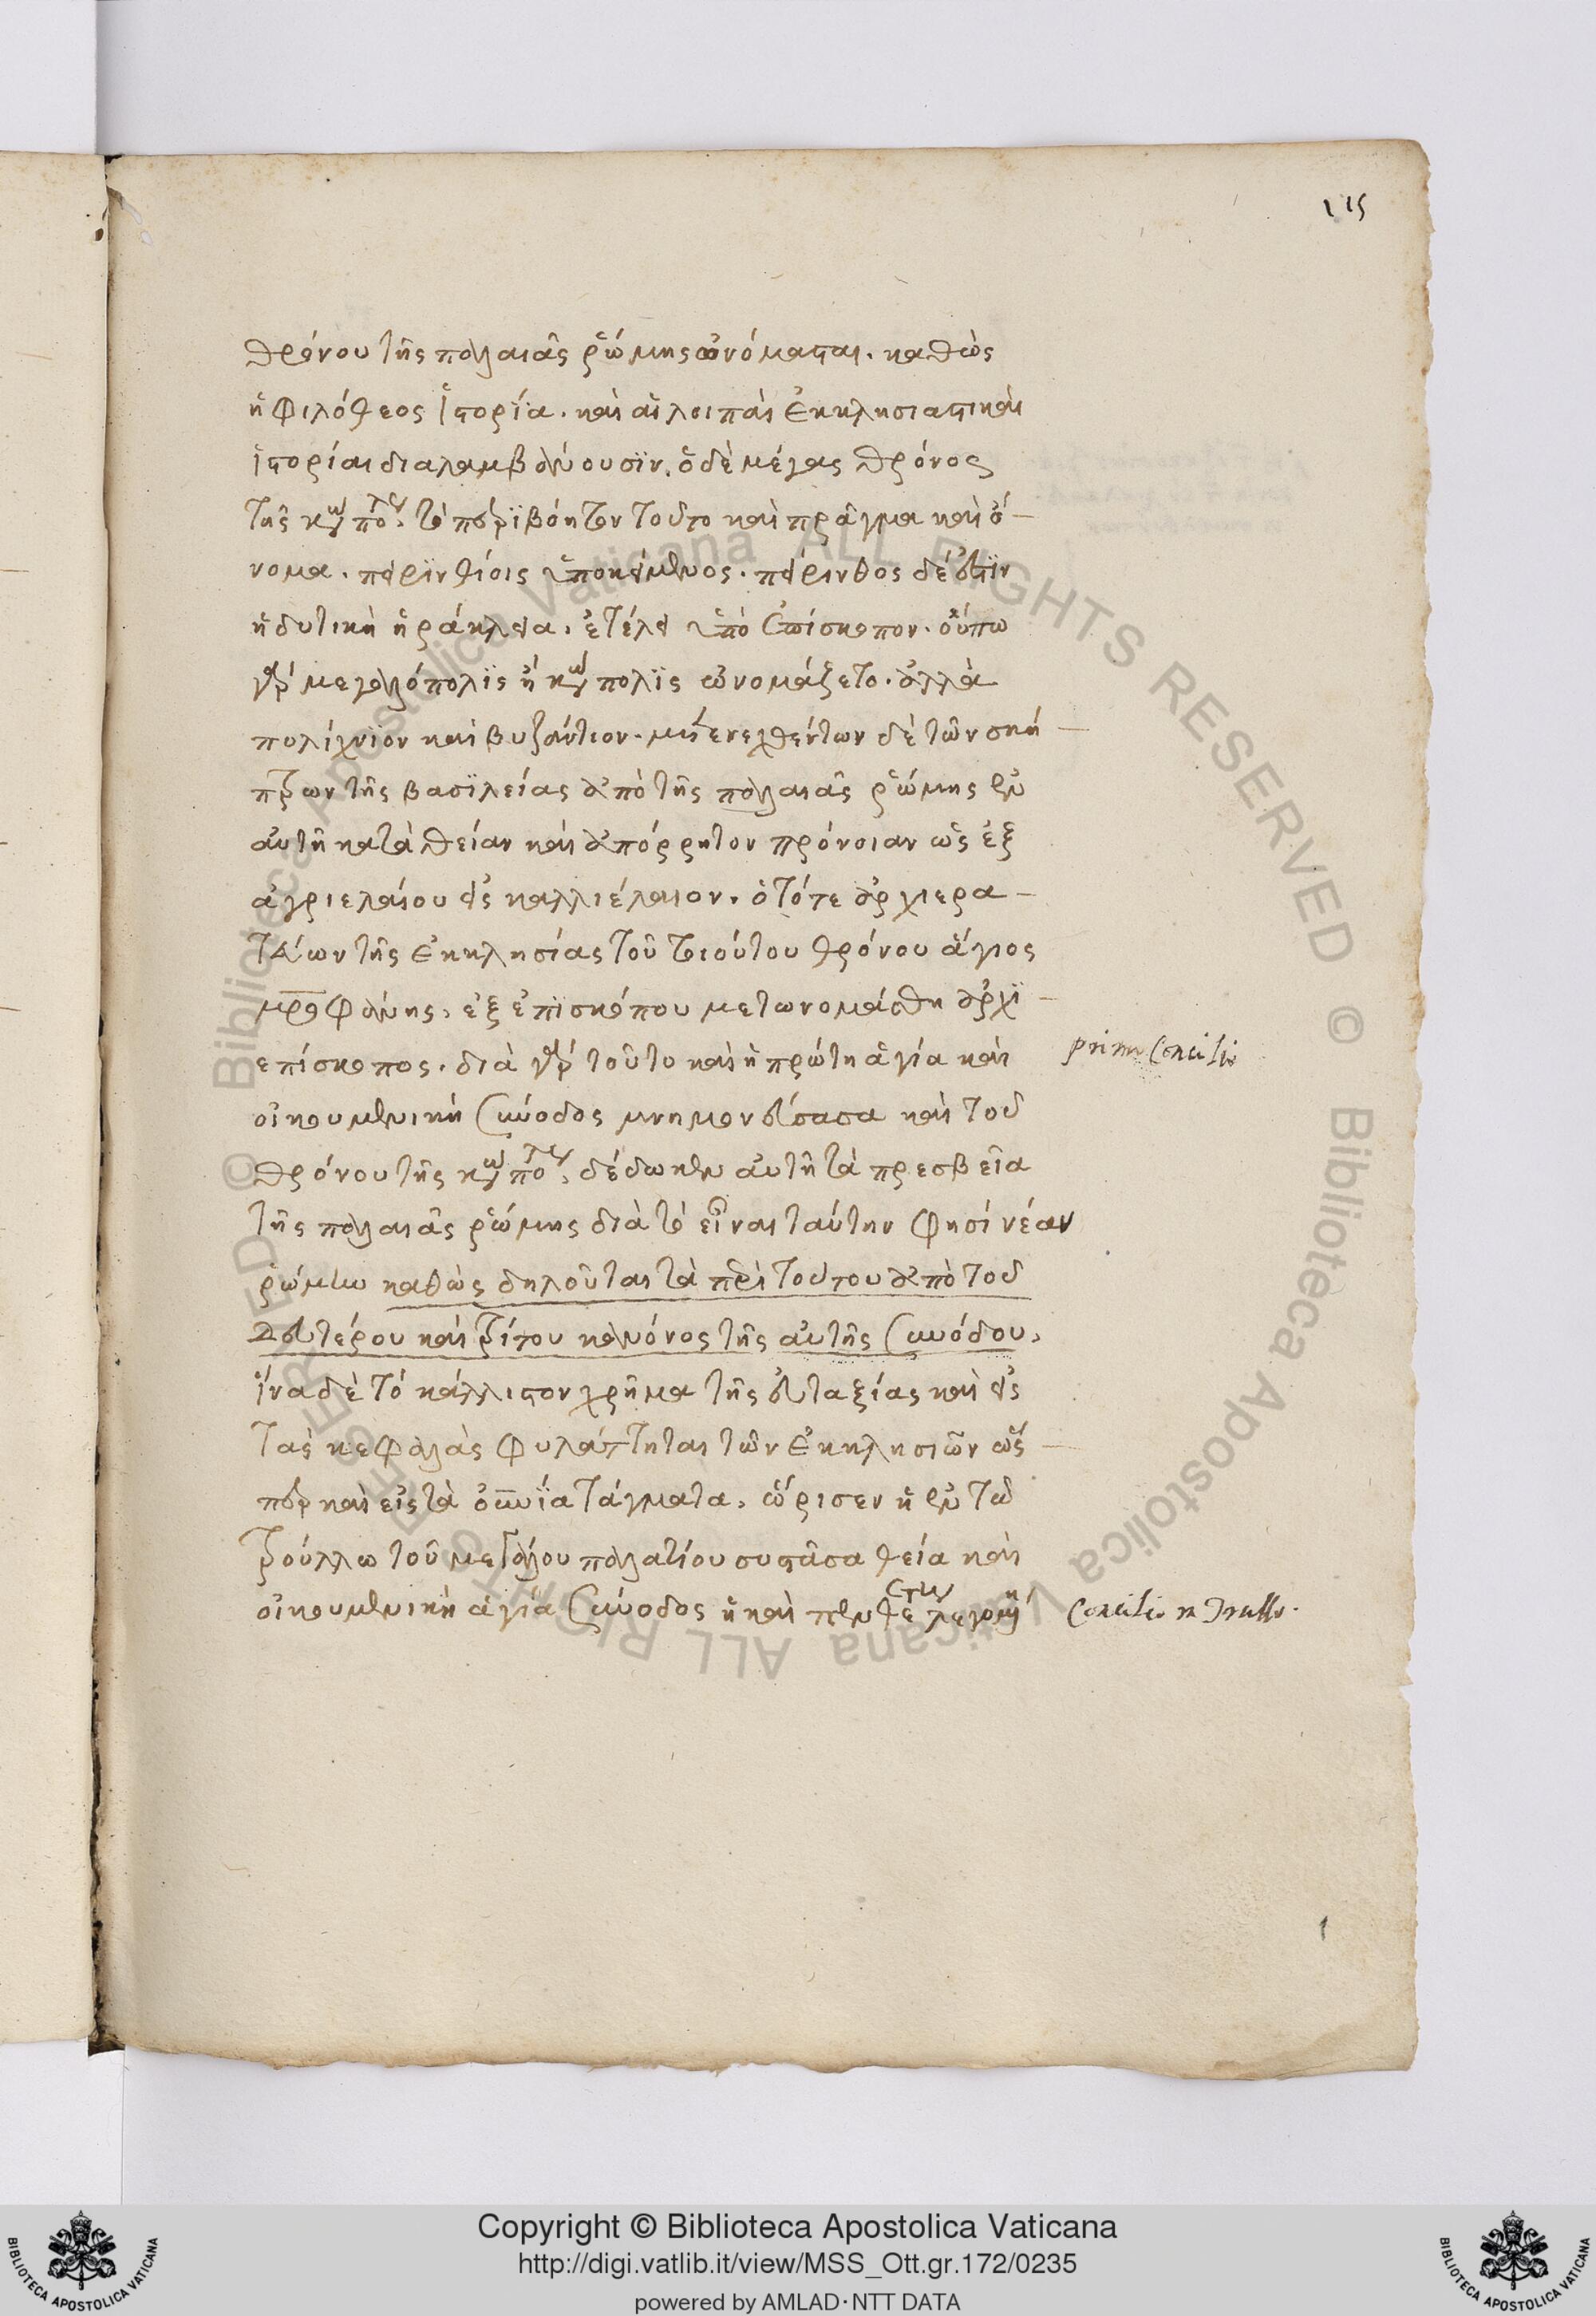 115
θρόνου τῆς παλαιᾶς ῥώμης ὀνόμασται. καθὼς
ἡ φιλόθεος ἱστορία. καὶ αἱ λοιπαὶ ἐκκλησιαστικαὶ
ἱστορίαι διαλαμβάνουσϊν. ὁ δὲ μέγας θρόνος
τῆς κων πο. τὸ περϊβόητον τοῦτο καὶ πρᾶγμα καὶ ὄ-
νομα. περϊνθίοις ὑποκείμενος. πέρινθος δέ ἐστϊν
ἡ δυτικὴ ἡράκλεια. ἐτέλει ὑπὸ ἐπίσκοπον. οὔπω
γὰρ μεγαλόπολϊς ἡ κων πολϊς ὠνομάζετο. ἀλλὰ
πολίχνϊον καὶ βυζάντιον. μετενεχθέντων δὲ τῶν σκή-
πτρων τῆς βασϊλείας ἀπὸ τῆς παλαιᾶς ῥώμης ἐν
αὐτῇ κατὰ θείαν καὶ ἀπόρρητον πρόνοιαν ὡς ἐξ
ἀγριελαίου εἰς καλλιέλαιον. ὁ τότε ἀρχιερα-
τεύων τῆς ἐκκλησίας τοῦ τοιούτου θρόνου ἅγιος
μητροφάνης, ἐξ ἐπϊσκόπου μετωνομάσθη ἀρχϊ-
επίσκοπος. διὰ γὰρ τοῦτο καὶ ἡ πρώτη ἁγία καὶ
primo Concilio
οἰκουμενικὴ σύνοδος μνημονεύσασα καὶ τοῦ
θρόνου τῆς κων πο, δέδωκεν αὐτῇ τὰ πρεσβεῖα
τῆς παλαιᾶς ῥώμης διὰ τὸ εἶναι ταύτην φησί νέαν
ῥώμην καθὼς δηλοῦται τὰ περὶ τούτου ἀπὸ τοῦ
δευτέρου καὶ τρίτου κανόνος τῆς αὐτῆς συνόδου,
ἵνα δὲ τὸ κάλλιστον χρῆμα τῆς εὐταξίας καὶ εἰς
τὰς κεφαλὰς φυλάττηται τῶν ἐκκλησιῶν ὥς-
περ καὶ εἰς τὰ ὀπυΐα τάγματα, ὥρισεν ἡ ἐν τῷ
τρούλλω τοῦ μεγάλου παλατίου συστᾶσα θεία καὶ
οἰκουμενικὴ ἁγία σύνοδος ἡ καὶ πενθέκτη λεγομένη
Concilio in Trullo.
1
Copyright © Biblioteca Apostolica Vaticana
http://digi.vatlib.it/view/MSS_Ott.gr.172/0235
powered by AMLAD·NTT DATA
BIBLIOTECA APOSTOLICA VATICANA
BIBLIOTECA APOSTOLICA VATICANA
© Biblioteca Apostolica Vaticana ALL RIGHTS RESERVED © Biblioteca Apostolica Vaticana ALL RIGHTS RESERVED